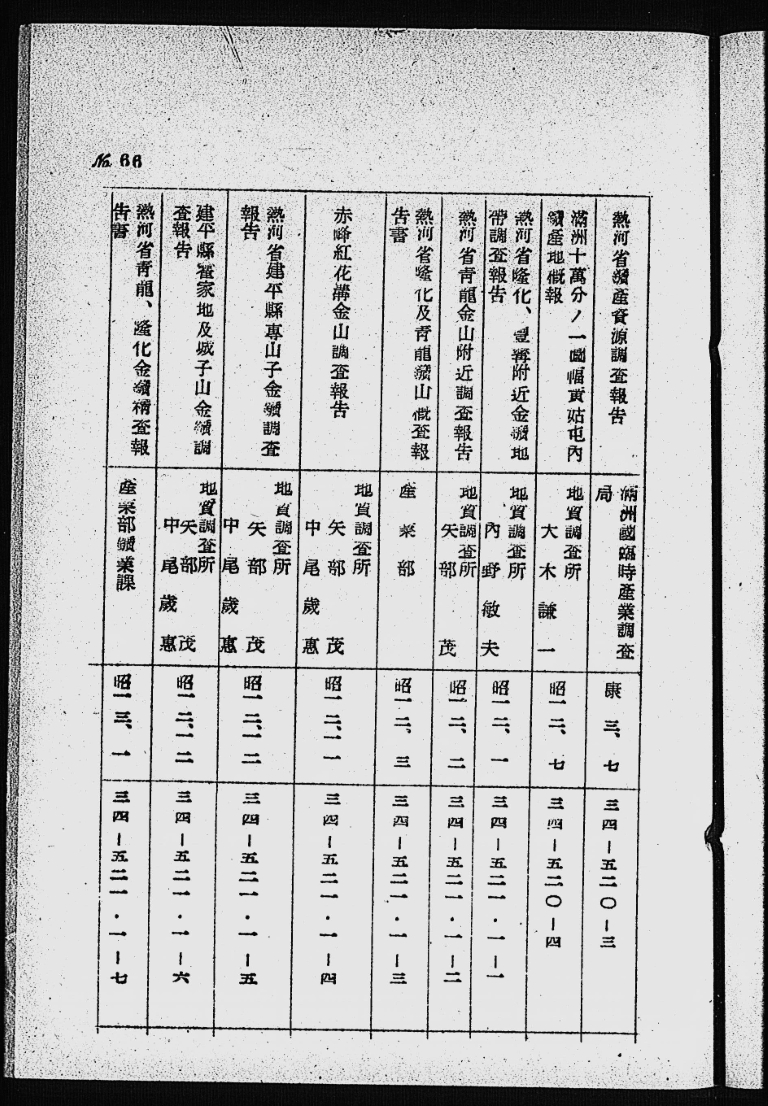 No. 66
熱河省鑛產資源調查報吿
滿洲國臨時產業調查
局
康 三、七
三四—五二〇—三
滿洲十萬分ノ一圖幅黃姑屯內
鑛產地槪報
地質調查所
大木謙一
昭一二、七
三四—五二〇—四
熱河省隆化、豐寗附近金鑛地
帶調查報吿
地質調查所
內野敏夫
昭一二、一
三四—五二一·一—一
熱河省靑龍金山附近調查報吿
地質調查所
矢部茂
昭一二、二
三四—五二一·一—二
熱河省隆化及靑龍鑛山槪查報
吿書
產業部
昭一二、三
三四—五二一·一—三
赤峰紅花溝金山調查報吿
地質調查所
矢部茂
中尾歲惠
昭一二、一一
三四—五二一·一—四
熱河省建平縣專山子金鑛調查
報吿
地質調查所
矢部茂
中尾歲惠
昭一二、一二
三四—五二一·一—五
建平縣霍家地及城子山金鑛調
查報吿
地質調查所
矢部茂
中尾歲惠
昭一二、一二
三四—五二一·一—六
熱河省靑龍、隆化金鑛精查報
吿書
產業部鑛業課
昭一三、一
三四—五二一·一—七